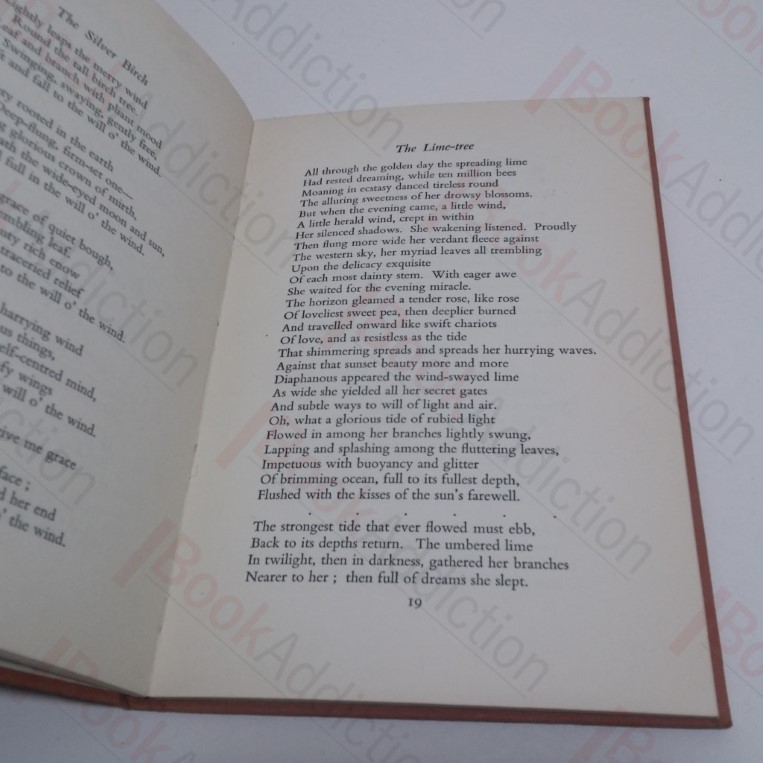 The Silver Birch
lightly leaps the merry wind
Round the tall birch tree,
Leaf and branch with plant mood
Swinging, swaying, gently free,
and fall to the will o' the wind.
rooted in the earth
Deep-flung, firm-set one—
glorious crown of mirth,
the wide-eyed moon and sun,
full in the will o' the wind.
grace of quiet bough,
trembling leaf,
rich enow
traceried relief
to the will o' the wind.
harrying wind
things,
self-centred mind,
wings
will o' the wind.
give me grace
face;
her end
the wind.
The Lime-tree
All through the golden day the spreading lime
Had rested dreaming, while ten million bees
Moaning in ecstasy danced tireless round
The alluring sweetness of her drowsy blossoms.
But when the evening came, a little wind,
A little herald wind, crept in within
Her silenced shadows. She wakening listened. Proudly
Then flung more wide her verdant fleece against
The western sky, her myriad leaves all trembling
Upon the delicacy exquisite
Of each most dainty stem. With eager awe
She waited for the evening miracle.
The horizon gleamed a tender rose, like rose
Of loveliest sweet pea, then deeplier burned
And travelled onward like swift chariots
Of love, and as resistless as the tide
That shimmering spreads and spreads her hurrying waves.
Against that sunset beauty more and more
Diaphanous appeared the wind-swayed lime
As wide she yielded all her secret gates
And subtle ways to will of light and air.
Oh, what a glorious tide of rubied light
Flowed in among her branches lightly swung,
Lapping and splashing among the fluttering leaves,
Impetuous with buoyancy and glitter
Of brimming ocean, full to its fullest depth,
Flushed with the kisses of the sun's farewell.
. . . . . .
The strongest tide that ever flowed must ebb,
Back to its depths return. The umbered lime
In twilight, then in darkness, gathered her branches
Nearer to her; then full of dreams she slept.
19
BookAddiction